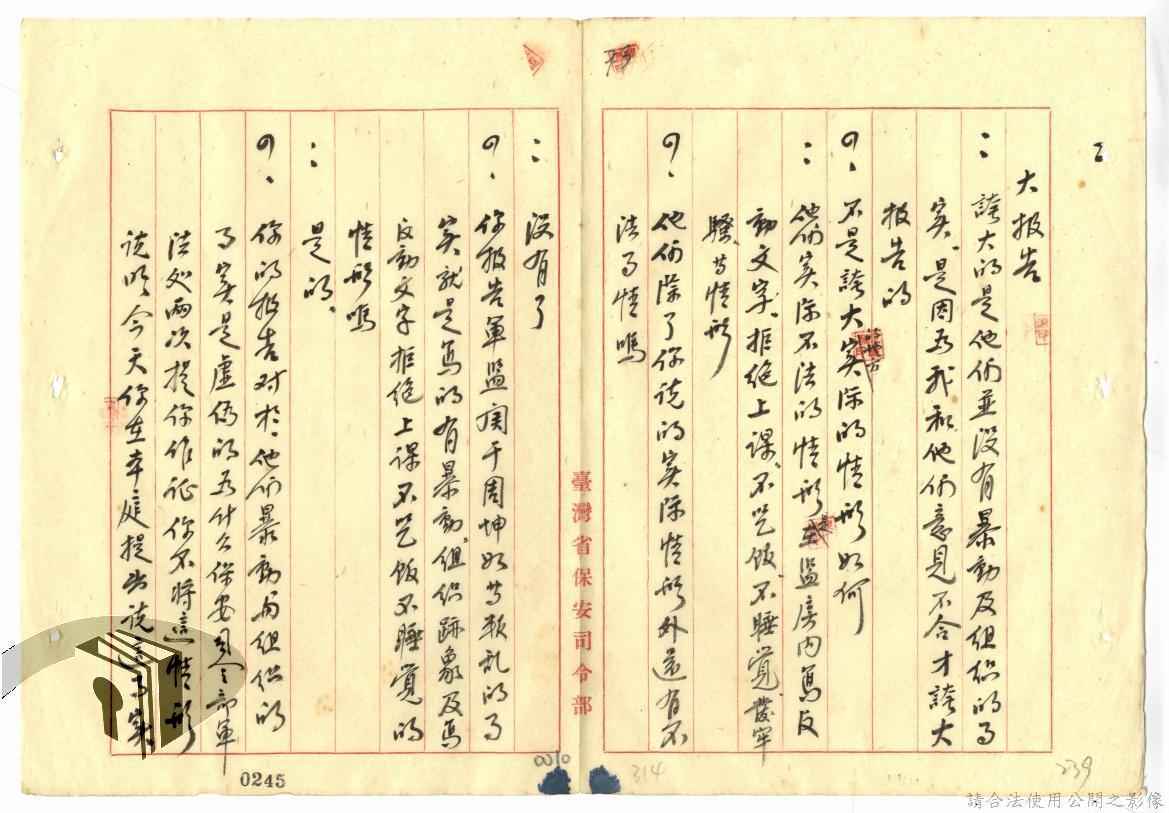 大报告
：誇大的是他们並没有暴動及组织的事
实。是因为我和他们意見不合才誇大
报告的
問、不是誇大实际的情形如何
：他们实际不法的情形是監房内写反
動文字、拒绝上课、不吃飯、不睡覚
騷 等情形
問、他们除了你说的实际情形外還有不
法事情嗎
：没有了
問、你报告軍監関于周坤如等叛乱的事
实就是写的有暴動、组织跡象及写
反動文字拒绝上课不吃飯不睡覚的
情形嗎
：是的、
問、你的报告对於他们暴動與组织的
事实是虚伪的为什么保安司令部軍
法处兩次提你作证你不将這情形
说明、今天你在本庭提出说這事实
臺灣省保安司令部
0245
0010
314
239
請合法使用公開之影像